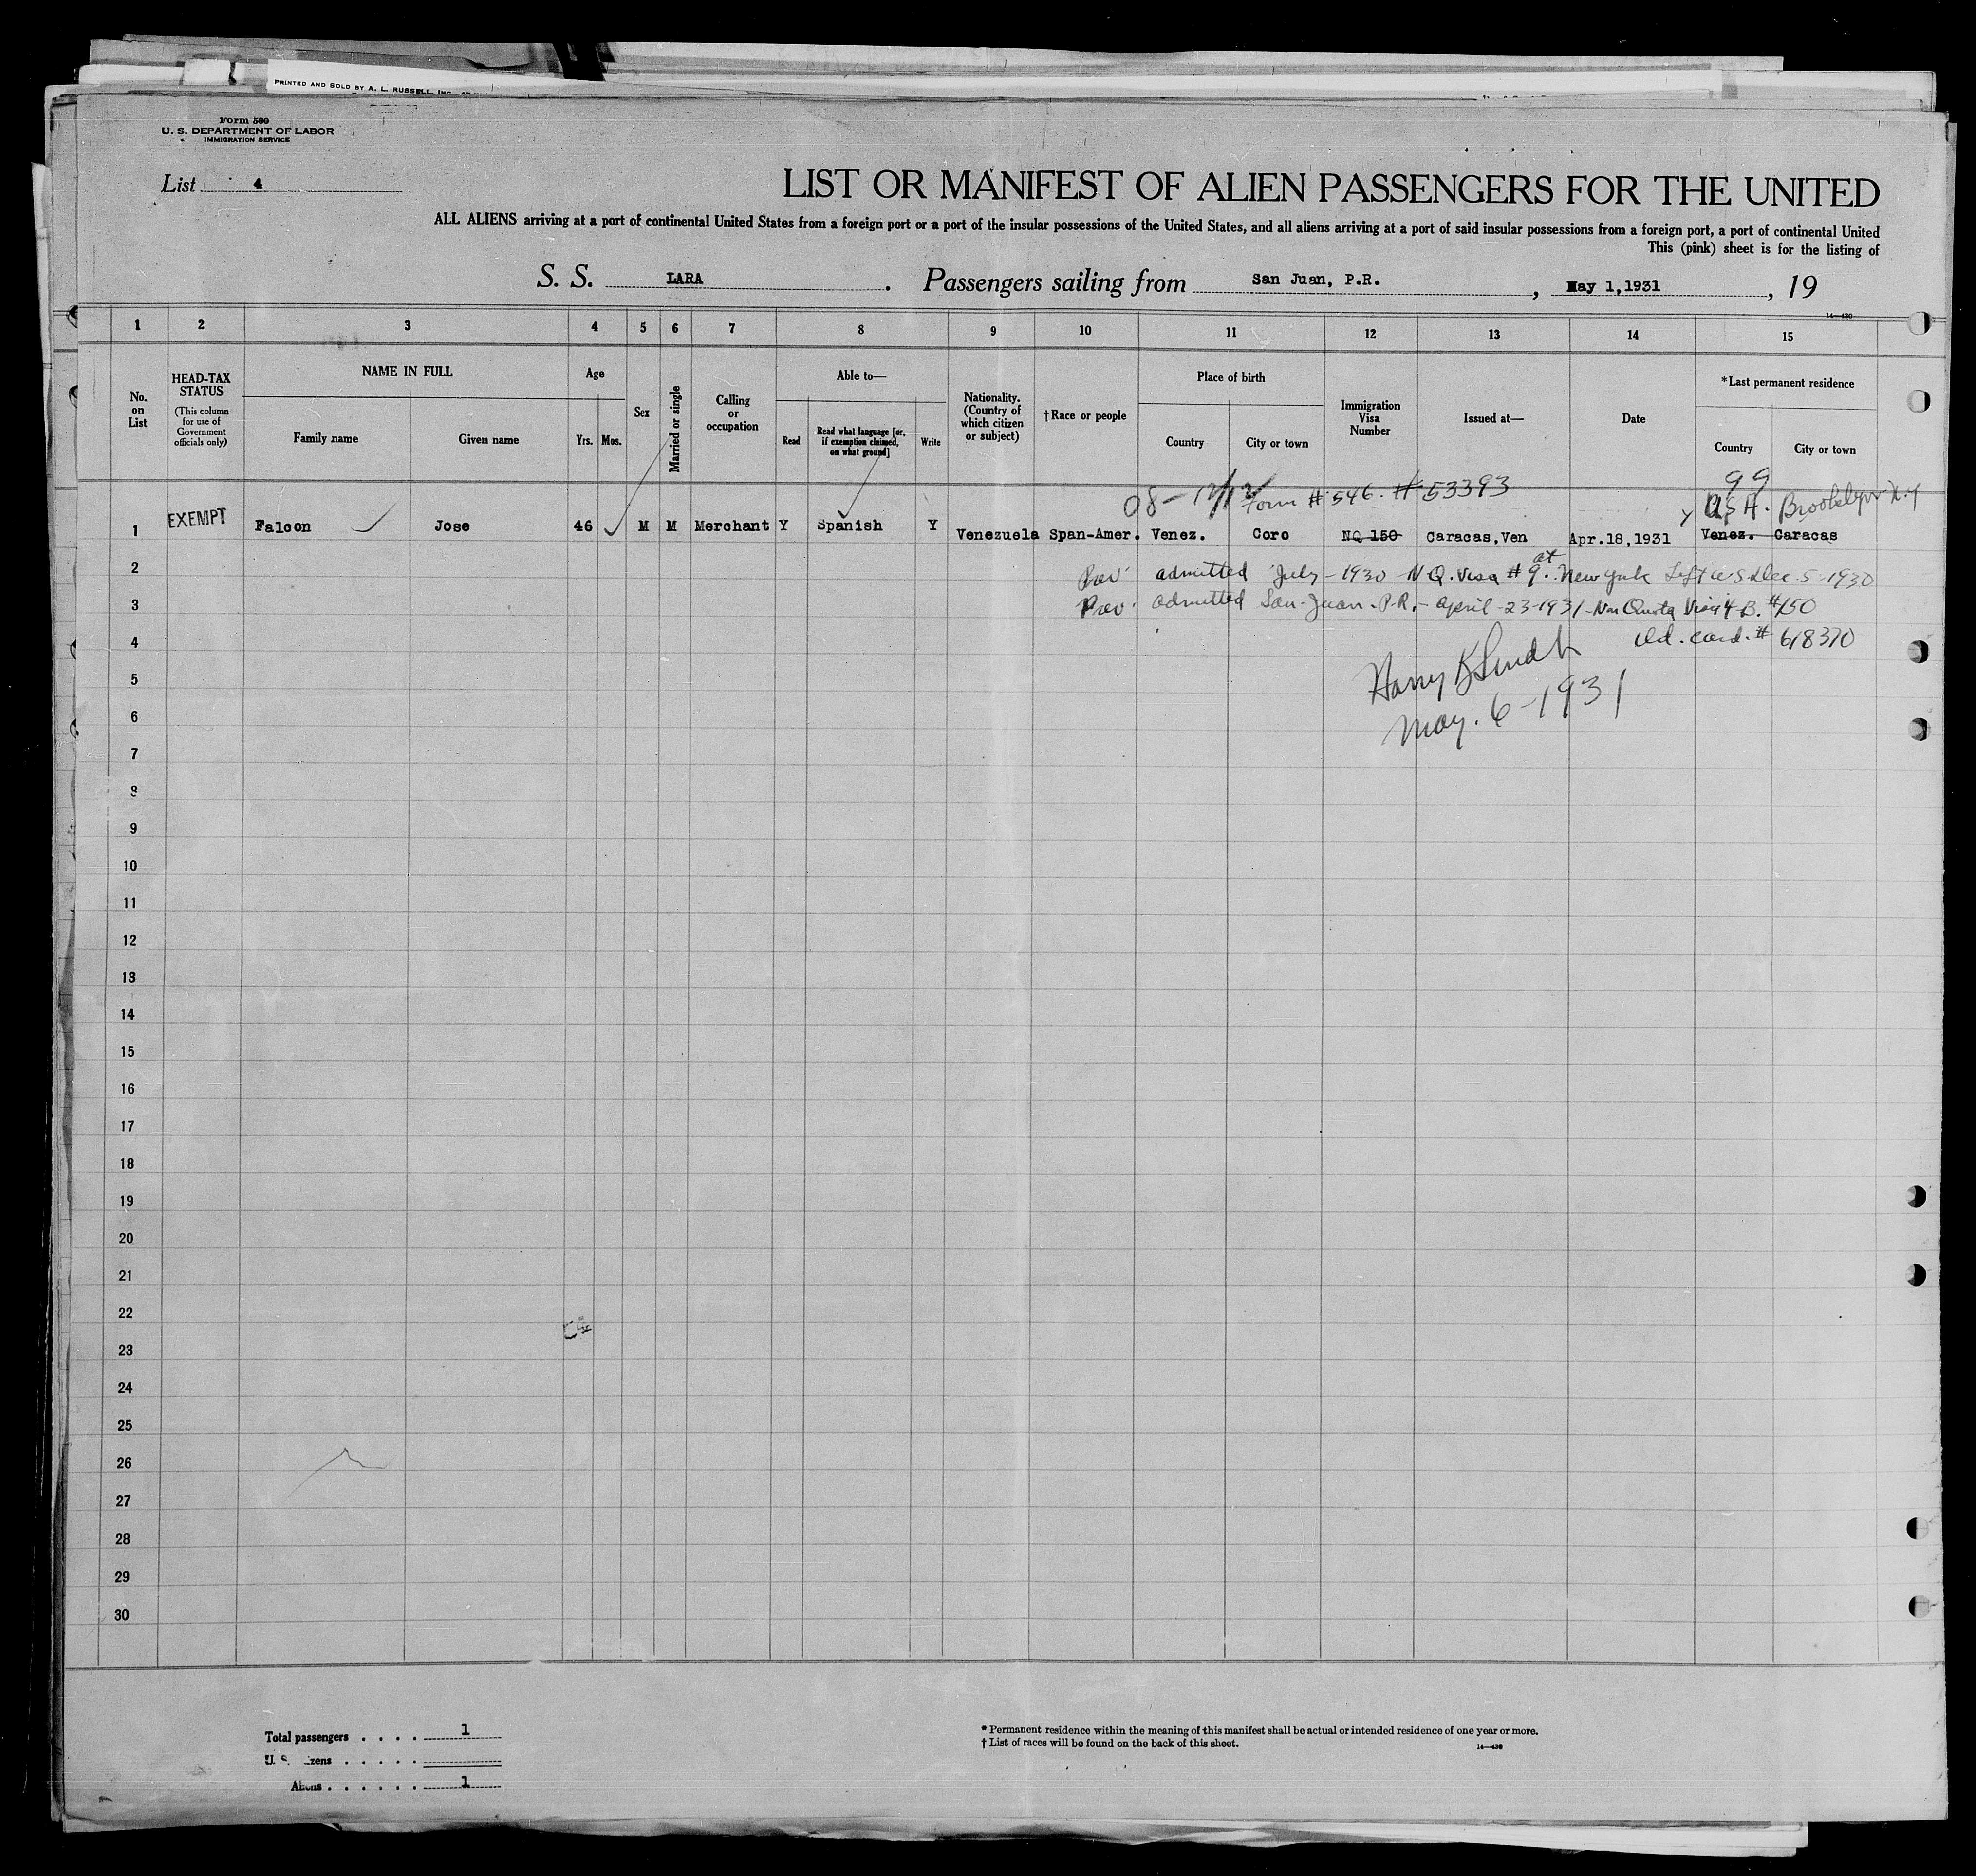 PRINTED AND SOLD BY A. L. RUSSELL, INC.
Form 500
U. S. DEPARTMENT OF LABOR
IMMIGRATION SERVICE
List 4
LIST OR MANIFEST OF ALIEN PASSENGERS FOR THE UNITED
ALL ALIENS arriving at a port of continental United States from a foreign port or a port of the insular possessions of the United States, and all aliens arriving at a port of said insular possessions from a foreign port, a port of continental United
This (pink) sheet is for the listing of
S. S. LARA. Passengers sailing from San Juan, P.R., May 1,1931, 19
14—430
1 2 3 4 5 6 7 8 9 10 11 12 13 14 15
No. on List
HEAD-TAX STATUS
(This column for use of Government officials only)
NAME IN FULL
Family name Given name
Age
Yrs. Mos.
Sex
Married or single
Calling or occupation
Able to—
Read
Read what language [or, if exemption claimed, on what ground]
Write
Nationality. (Country of which citizen or subject)
†Race or people
Place of birth
Country City or town
Immigration Visa Number
Issued at—
Date
*Last permanent residence
Country City or town
99
08- 12/12 Form #546. #53393
U.S.A. Brooklyn N.Y
1 EXEMPT Falcon Jose 46 M M Merchant Y Spanish Y Venezuela Span-Amer. Venez. Coro NQ 150 Caracas,Ven Apr.18,1931 Venez. Caracas
2 Prev admitted July-1930-N.Q. Visa #9. at New York Left U.S Dec. 5-1930
3 Prev. admitted San Juan-P.R.- April-23-1931-Non Quota Visa 4-B. #150
4 Id. card. # 618370
5
6 May. 6-1931
7
8
9
10
11
12
13
14
15
16
17
18
19
20
21
22
23
24
25
26
27
28
29
30
Total passengers . . . . 1
U. S. zens . . . . .
Aliens . . . . . . 1
* Permanent residence within the meaning of this manifest shall be actual or intended residence of one year or more.
† List of races will be found on the back of this sheet.
14—430